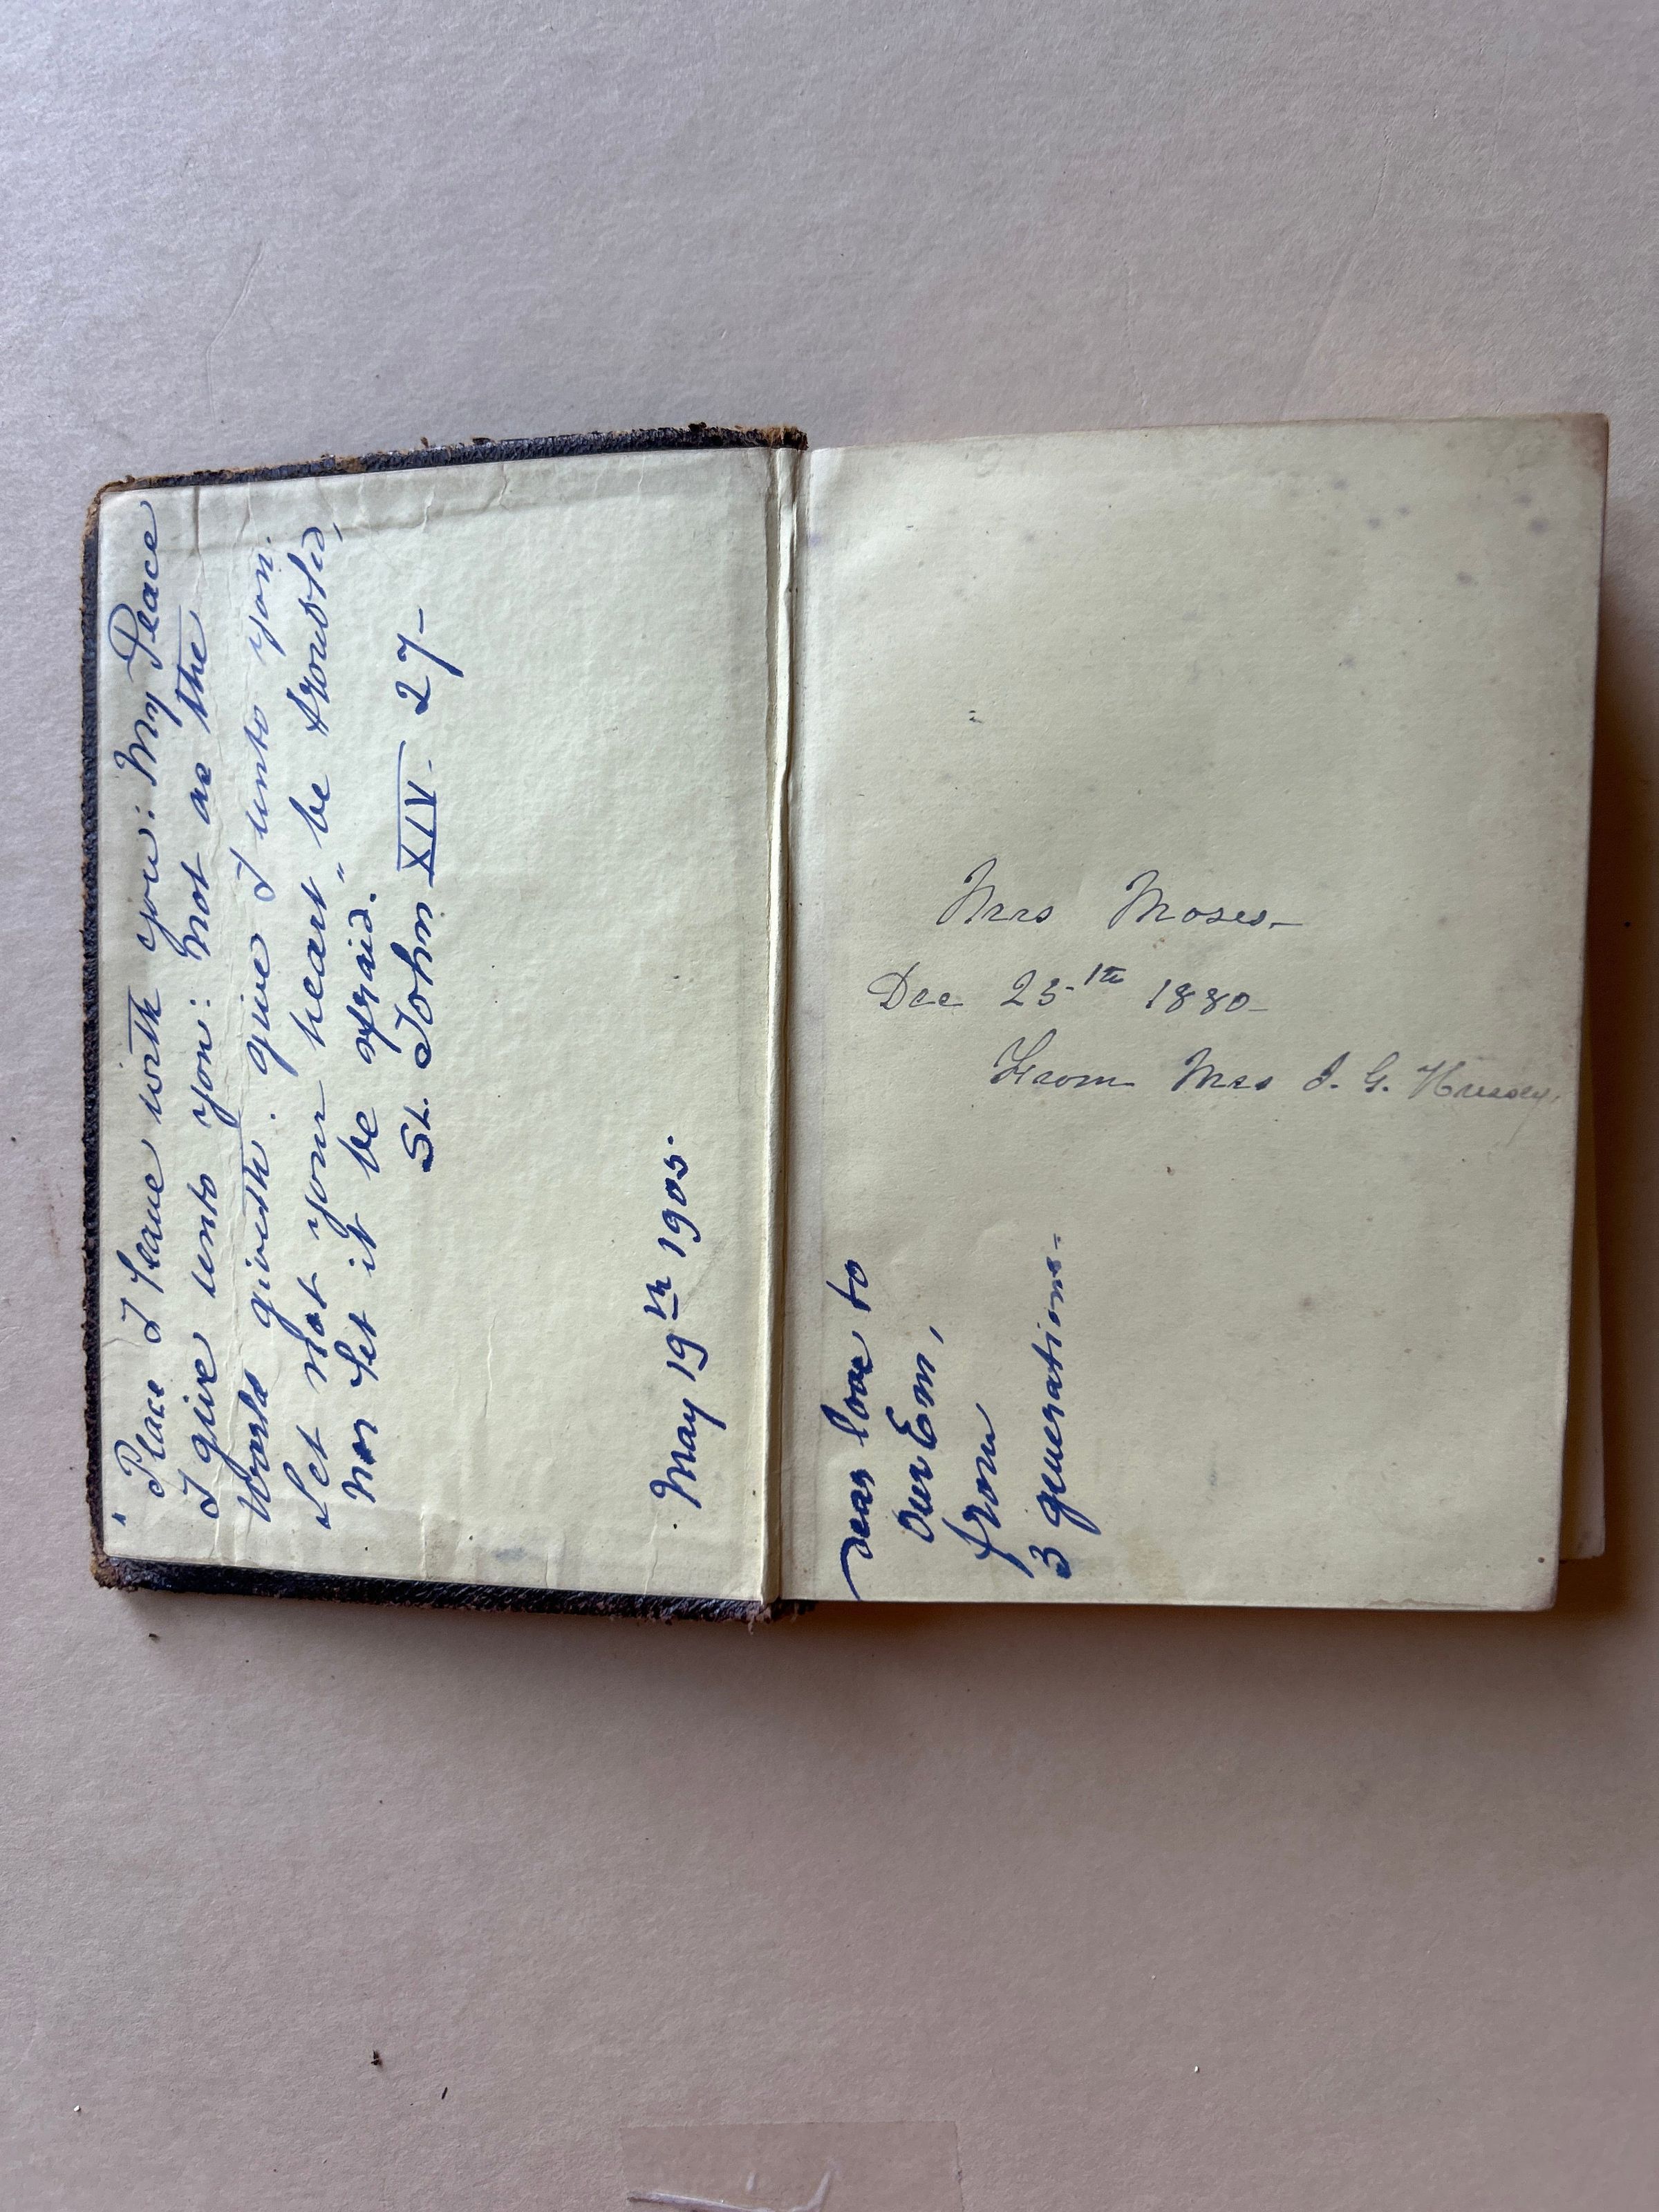 " Peace I leave with you: My Peace
I give unto you: not as the
World giveth. give I unto you.
Let not your heart " be troubled,
nor let it be afraid.
St. John XIV. 27-
May 19th 1905.
Dear love to
Our Em,
from
3 generations-
Mrs Moses-
Dec 25th 1880-
From Mrs J. G. Hussey.